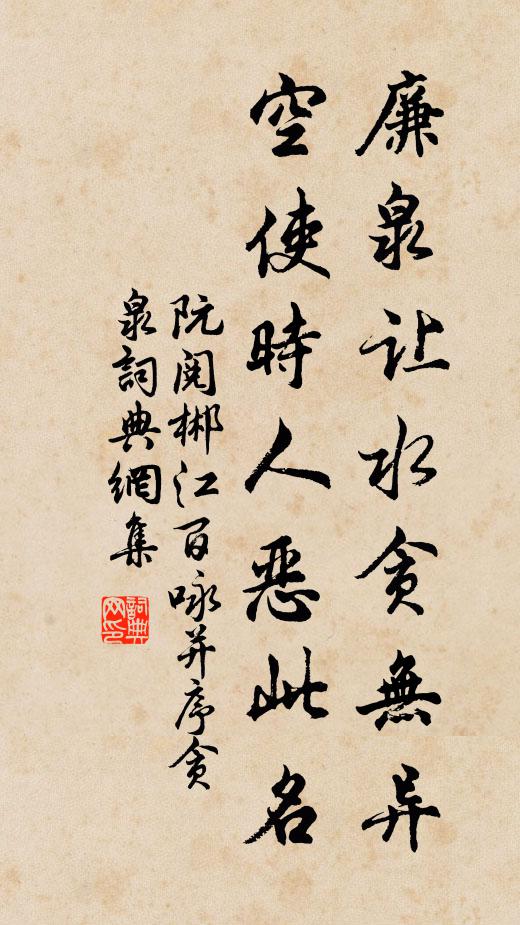 廉泉让水贪無异
空使時人恶此名
阮阅郴江百咏并序贪
泉詞典網集
詞典网印